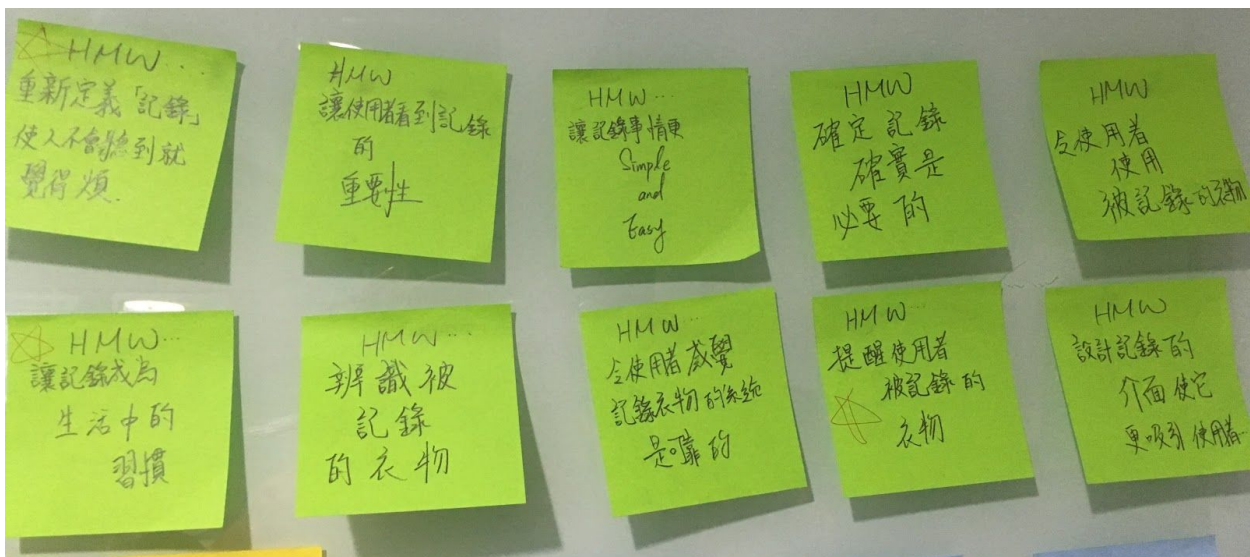 HMW...
重新定義「記錄」
使人不會聽到就
覺得煩.
HMW
讓使用者看到記錄
的
重要性
HMW...
讓記錄事情更
Simple
and
Easy
HMW
確定記錄
確實是
必要的
HMW
令使用者
使用
被記錄的衣物
HMW...
讓記錄成為
生活中的
習慣
HMW...
辨識被
記錄
的衣物
HMW...
令使用者感覺
記錄衣物的系統
是可靠的
HMW...
提醒使用者
被記錄的
衣物
HMW
設計記錄的
介面使它
更吸引使用者...